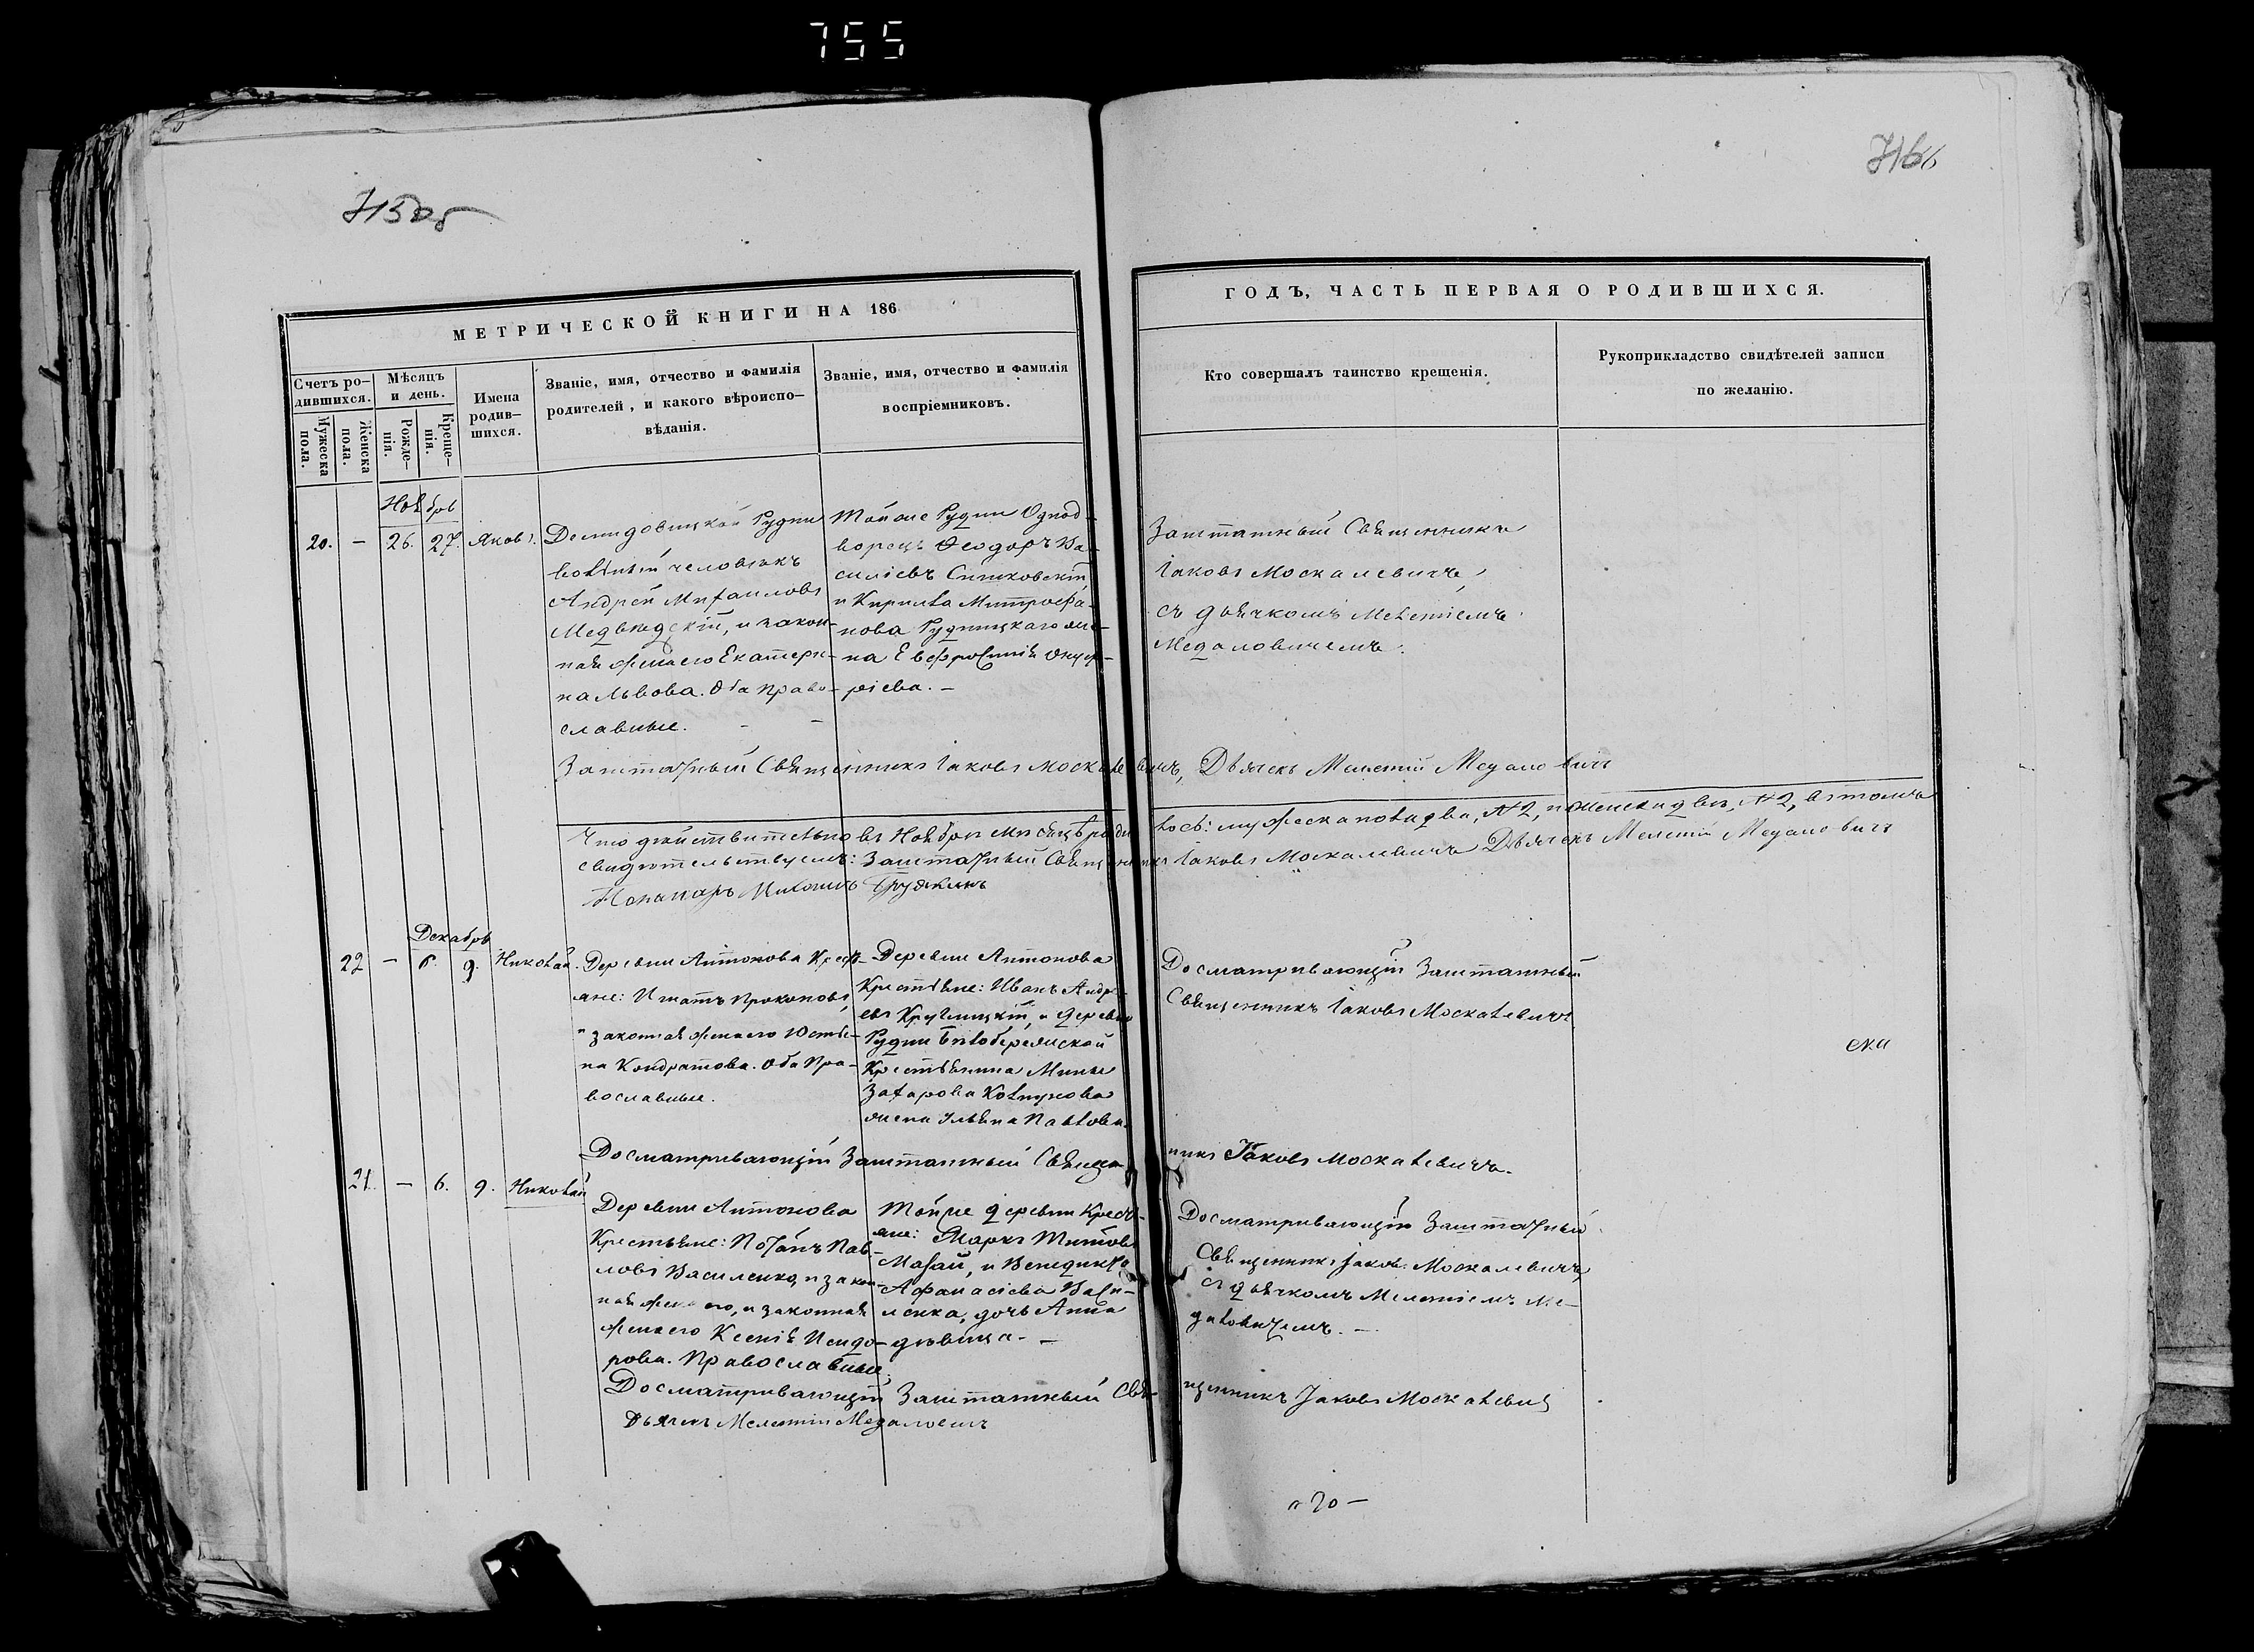 755
715об
716
МЕТРИЧЕСКОЙ КНИГИ НА 186
ГОДЪ, ЧАСТЬ ПЕРВАЯ О РОДИВШИХСЯ.
Счетъ ро-
дившихся.
Мужеска
пола.
Женска
пола.
Мѣсяцъ
и день.
Рожде-
нія.
Креще-
нія.
Имена
родив-
шихся.
Званіе, имя, отчество и фамилія
родителей, и какого вѣроиспо-
вѣданія.
Званіе, имя, отчество и фамилія
воспріемниковъ.
Кто совершалъ таинство крещенія.
Рукоприкладство свидѣтелей записи
по желанію.
Ноябрь
20. - 26. 27. Яковъ.
Демидовицкой Рудни
вольный человѣкъ
Андрей Михайловъ
Медвѣдскій, и закон-
ная жена его Екатери-
на Львова. Оба право-
славные.
Той же Рудни Однод-
ворецъ Ѳеодоръ Ва-
силіевъ
и Кирила Митрофа-
нова Рудницкаго же-
на Евфросинія Онуф-
ріева. -
Заштатный Священникъ
Іаковъ Москалевичъ,
съ дьячкомъ Мелетіемъ
Медаловичемъ.
Заштатный Священникъ Іаковъ Москалевичъ, Дьячекъ Мелетій Медаловичъ
Что дѣйствительно въ Ноябрѣ мѣсяцѣ родилось: мужеска пола два, №2, и женска двѣ, №2, въ томъ
свидѣтельствуемъ: Заштатный Священникъ Іаковъ Москалевичъ Дьячекъ Мелетій Медаловичъ
Понамарь
Декабрь
22 - 6. 9. Николай.
Деревни Антонова Крест-
яне: Игнатъ Прокоповъ,
и законная жена его Юсти-
на Кондратова. Оба Пра-
вославные.
Деревни Антонова
Крестьяне: Иванъ Андре-
евъ Круглицкій, и деревни
Рудни Бѣлобережской
Крестьянина Мины
Захарова Ковтунова
жена Ульяна Павлова.
Досматривающій Заштатный
Священникъ Іаковъ Москалевичъ
Досматривающій Заштатный Священникъ Іаковъ Москалевичъ.
21. - 6. 9. Николай
Деревни Антонова
Крестьяне: Потапъ Пав-
ловъ Василенко, и закон-
ная жена его, и законная
жена его Ксенія Исидо-
рова. Православные.
Той же деревни Крест-
яне: Марко Титовъ
Махай, и Венедикта
Афанасіева Васи-
ленка, дочь Анна
дѣвица. -
Досматривающій Заштатный
Священникъ Іаковъ Москалевичъ,
съ дьячкомъ Мелетіемъ Ме-
даловичемъ. -
Досматривающій Заштатный Священникъ Іаковъ Москалевичъ
Дьячекъ Мелетій Медаловичъ